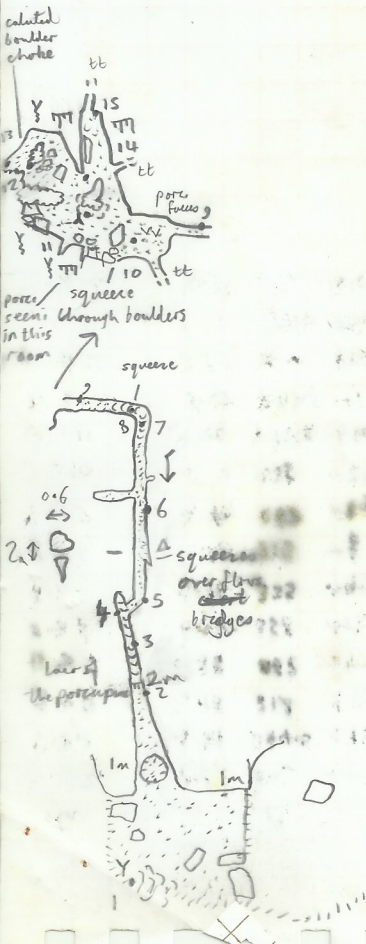 calcited
boulder
choke
tt
15
14
tt
13
12
porc
faeces
9
11
10
tt
porc
seen through boulders
in this
room
squeeze
squeeze
8
7
0.6
6
2
squeezes
over flow
bridges
5
4
3
lair of
the porcupine
2m
2
1m
1m
1